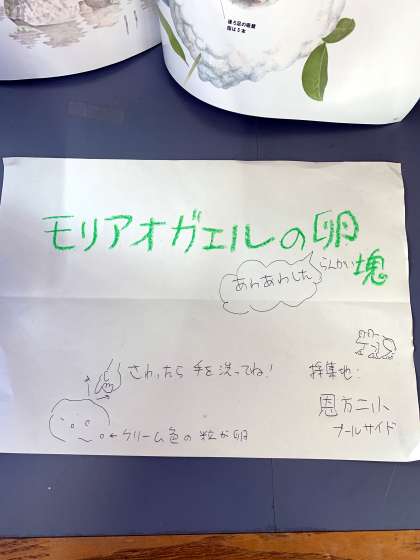 後ろ足の指は5本
モリアオガエルの卵塊
らんかい
あわあわした
さわったら 手を洗ってね!
採集地:
恩方二小
プールサイド
←クリーム色の粒が卵